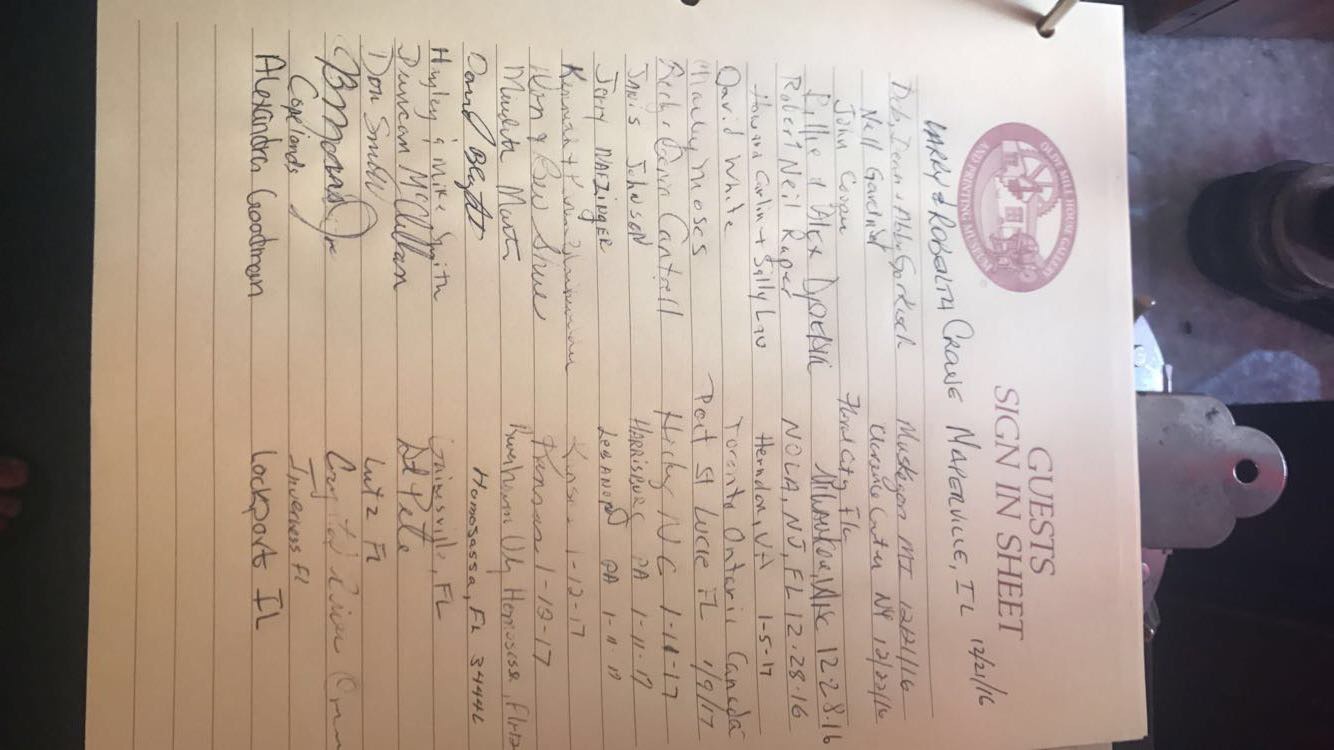 OLDE MILL HOUSE GALLERY
AND PRINTING MUSEUM
GUESTS
SIGN IN SHEET
LARRY & ROSALITA CRANE NAPERVILLE, IL 12/21/16
Deb, Dean & Abby Muskegon MI 12/21/16
Nell Gardner Clarence Center NY 12/22/16
John Cooper Floral City FL
Billie & Alex Milwaukee, WI 12-28-16
Robert Neil Ruper NOLA, NJ, FL 12-28-16
Howard Carlin + Sally Lau Herndon, VA 1-5-17
David White Toronto Ontario Canada
Stanley Moses Port St Lucie FL 1/9/17
Rich & Cantall Hickory NC 1-11-17
JANIS JOHNSON HARRISBURG PA 1-11-17
JERRY NAFZINGER LEBANON PA 1-11-17
Kenneth + Karen Kansas 1-12-17
& Bev Kansas 1-12-17
Meredith Martin Riverhaven Homosassa, FL
David Homosassa, FL 34446
Hayley & Mike Smith Gainesville, FL
Duncan McClellan St Pete
Don Smith Lutz FL
Crystal River
Copelands Inverness FL
Alexandra Goodman Lockport IL